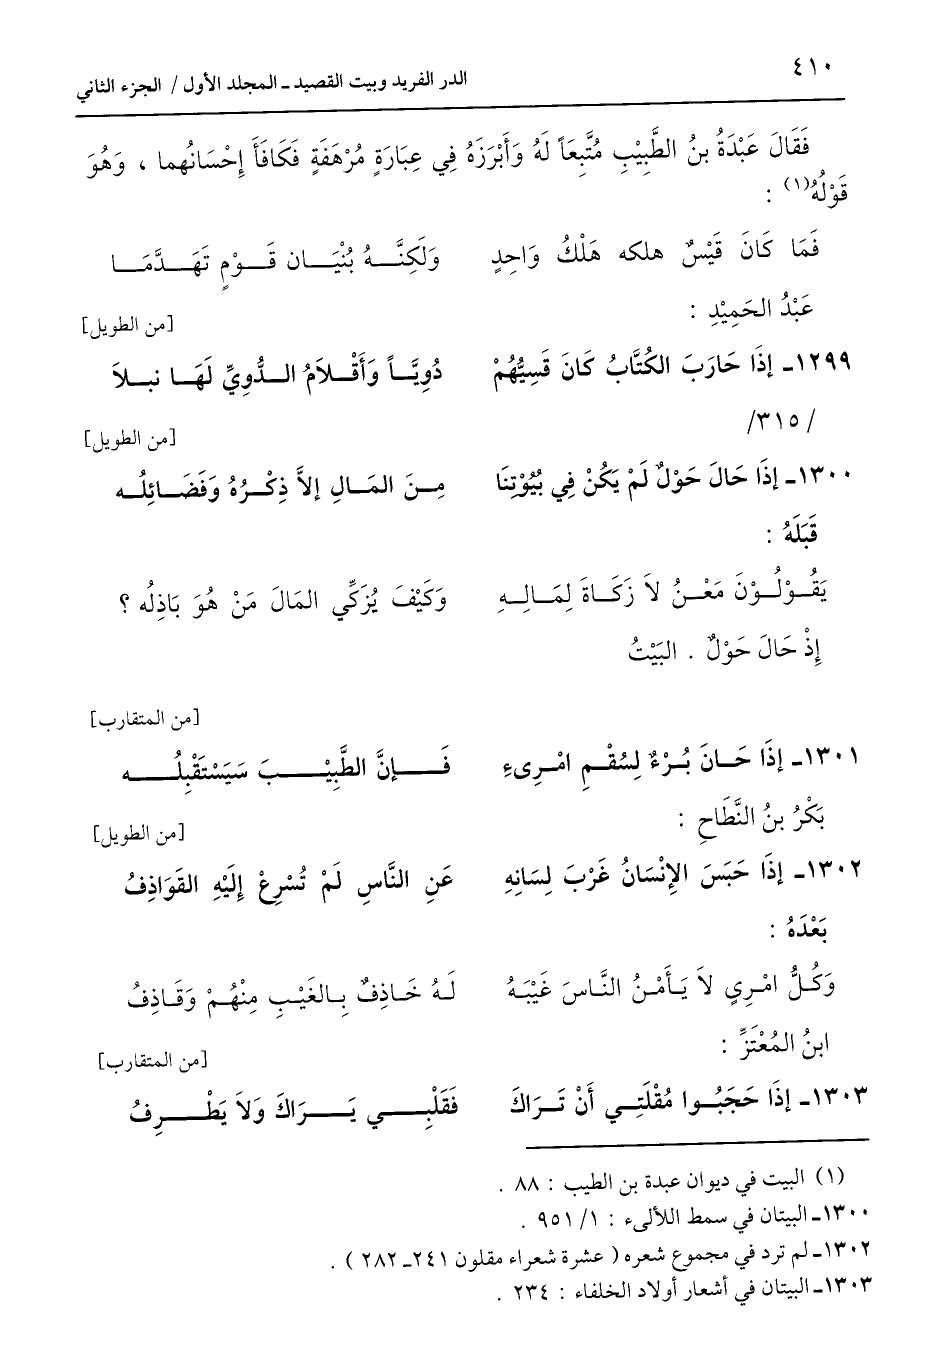 ٤١٠
الدر الفريد وبيت القصيد ـ المجلد الأول / الجزء الثاني
فَقَالَ عَبْدَةُ بنُ الطَّبِيْبِ مُتَّبِعَاً لَهُ وَأَبْرَزَهُ فِي عِبَارَةٍ مُرْهَفَةٍ فَكَافَأَ إِحْسَانُهما ، وَهُوَ
قَوْلُهُ(١) :
فَمَا كَانَ قَيْسٌ هلكه هَلْكُ وَاحِدٍ وَلَكِنَّهُ بُنْيَان قَوْمٍ تَهَدَّمَا
عَبْدُ الحَمِيْدِ : [من الطويل]
١٢٩٩ـ إِذَا حَارَبَ الكُتَّابُ كَانَ قَسِيُّهُمْ دُوِيَّاً وَأَقْلَامُ الدُّوِيِّ لَهَا نبلاَ
/٣١٥/ [من الطويل]
١٣٠٠ـ إِذَا حَالَ حَوْلٌ لَمْ يَكُنْ فِي بُيُوْتِنَا مِنَ المَالِ إِلاَّ ذِكْرُهُ وَفَضَائِلُه
قَبْلَهُ :
يَقُوْلُوْنَ مَعْنُ لاَ زَكَاةَ لِمَالِهِ وَكَيْفَ يُزَكِّي المَالَ مَنْ هُوَ بَاذِلُه ؟
إِذْ حَالَ حَوْلٌ . البَيْتُ
[من المتقارب]
١٣٠١ـ إِذَا حَانَ بُرْءٌ لِسُقْمِ امْرِىءٍ فَإِنَّ الطَّبِيْبَ سَيَسْتَقْبِلُه
بَكْرُ بنُ النَّطَاحِ : [من الطويل]
١٣٠٢ـ إِذَا حَبَسَ الإِنْسَانُ غَرْبَ لِسَانِهِ عَنِ النَّاسِ لَمْ تُسْرِعْ إِلَيْهِ القَوَاذِفُ
بَعْدَهُ :
وَكُلُّ امْرِيٍ لاَ يَأْمَنُ النَّاسَ غَيْبَهُ لَهُ خَاذِفٌ بِالغَيْبِ مِنْهُمْ وَقَاذِفُ
ابنُ المُعْتَزِّ : [من المتقارب]
١٣٠٣ـ إِذَا حَجَبُوا مُقْلَتِي أَنْ تَرَاكَ فَقَلْبِي يَرَاكَ وَلاَ يَطْرِفُ
(١) البيت في ديوان عبدة بن الطيب : ٨٨ .
١٣٠٠ـ البيتان في سمط اللألىء : ١/ ٩٥١ .
١٣٠٢ـ لم ترد في مجموع شعره ( عشرة شعراء مقلون ٢٤١ـ ٢٨٢ ) .
١٣٠٣ـ البيتان في أشعار أولاد الخلفاء : ٢٣٤ .